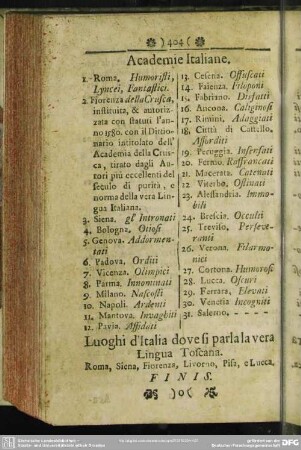 )404(
Academie Italiane.
1. Roma, Humoristi,
Lyncei, Fantastici.
2. Fiorenza della Crusca,
instituita, & autoriz-
zata con statuti l'an-
no 1580. con il Dittio-
nario intitolato dell'
Academia della Crus-
ca, tirato dagli Au-
tori più eccellenti del
secolo di purità, e
norma della vera Lin-
gua Italiana.
3. Siena, gl' Intronati
4. Bologna, Otiosi
5. Genova. Addormen-
tati
6. Padova, Orditi
7. Vicenza. Olimpici
8. Parma. Innominati
9. Milano. Nascosti
10. Napoli. Ardenti
11. Mantova. Invaghiti
12. Pavia. Affidati
13. Cesena. Offuscati
14. Faienza. Filoponi
15. Fabriano. Disfatti
16. Ancona. Caliginosi
17. Rimini. Adaggiati
18. Città di Castello.
Assorditi
19. Peruggia. Insensati
20. Fermo. Raffrancati
21. Macerata. Catenati
22. Viterbo. Ostinati
23. Alessandria. Immo-
bili
24. Brescia. Occulti
25. Treviso, Perseve-
ranti
26. Verona. Filarmo-
nici
27. Cortona. Humorosi
28. Lucca. Oscuri
29. Ferrara, Elevati
30. Venetia Incogniti
31. Salerno,
Luoghi d'Italia dove si parla la vera
Lingua Toscana.
Roma, Siena, Fiorenza, Livorno, Pisa, e Lucca.
FINIS.